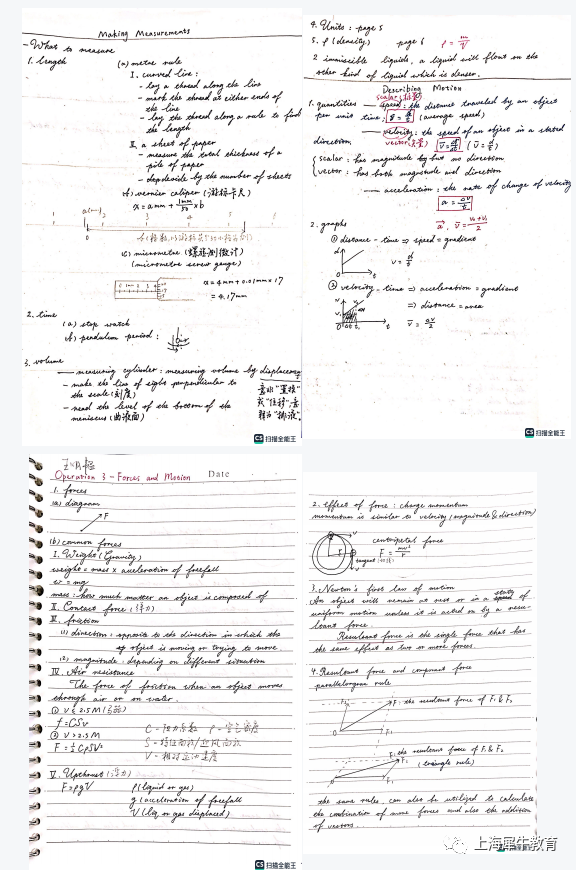 Making Measurements
- What to measure
1. length
(a) metre rule
I. curved line:
- lay a thread along the line
- mark the thread at either ends of
the line
- lay the thread along a rule to find
the length
II. a sheet of paper
- measure the total thickness of a
pile of paper
- by the number of sheets
(b) vernier caliper (游标卡尺)
(c) micrometre (螺旋测微计)
(micrometre screw gauge)
x = 4mm + 0.01mm × 17
= 4.17mm
2. time
(a) stop watch
(b) pendulum period:
3. volume
— measuring cylinder: measuring volume by displacement
- make the line of sight perpendicular to
the scale (刻度)
- read the level of the bottom of the
meniscus (曲液面)
意为"置换"
或"位移",意
释为"排液".
CS 扫描全能王
4. Units: page 5
5. ρ (density) page 6 ρ = m/V
2 immiscible liquids, a liquid will float on the
other kind of liquid which is denser.
Describing Motion
scalar (标量)
1. quantities — speed: the distance traveled by an object
per unit time. (average speed)
— velocity: the speed of an object in a stated
direction. vector (矢量)
scalar: has magnitude but no direction
vector: has both magnitude and direction
— acceleration: the rate of change of velocity
2. graphs
① distance - time ⇒ speed = gradient
② velocity - time ⇒ acceleration = gradient
⇒ distance = area
CS 扫描全能王
Operation 3 - Forces and Motion Date
1. forces
(a) diagram
F
(b) common forces
I. Weight (Gravity)
weight = mass × acceleration of freefall
w = mg
mass: how much matter an object is composed of
II. Contact force (弹力)
III. friction
(1) direction: opposite to the direction in which the
object is moving or trying to move.
(2) magnitude: depending on different situation
IV. Air resistance
The force of friction when an object moves
through air or on water.
f = CSv
② v > 2.5M
F = ½CρSV²
C - 阻力系数 ρ - 空气密度
V - 相对运动速度
V. Upthrust (浮力)
F = ρgV
ρ (liquid or gas)
g (acceleration of freefall)
V (liq or gas displaced)
CS 扫描全能王
2. effect of force: change momentum
momentum is similar to velocity (magnitude & direction)
centripetal force
F = mv²/r
3. Newton's first law of motion
An object will remain at rest or in a state of
uniform motion unless it is acted on by a resu-
ltant force.
Resultant force is the single force that has
the same effect as two or more forces.
4. Resultant force and component force
parallelogram rule
F: the resultant force of F₁ & F₂
F: the resultant force of F₁ & F₂
(triangle rule)
the same rules can also be utilized to calculate
the combination of more forces and also the addition
of vectors.
上海犀牛教育